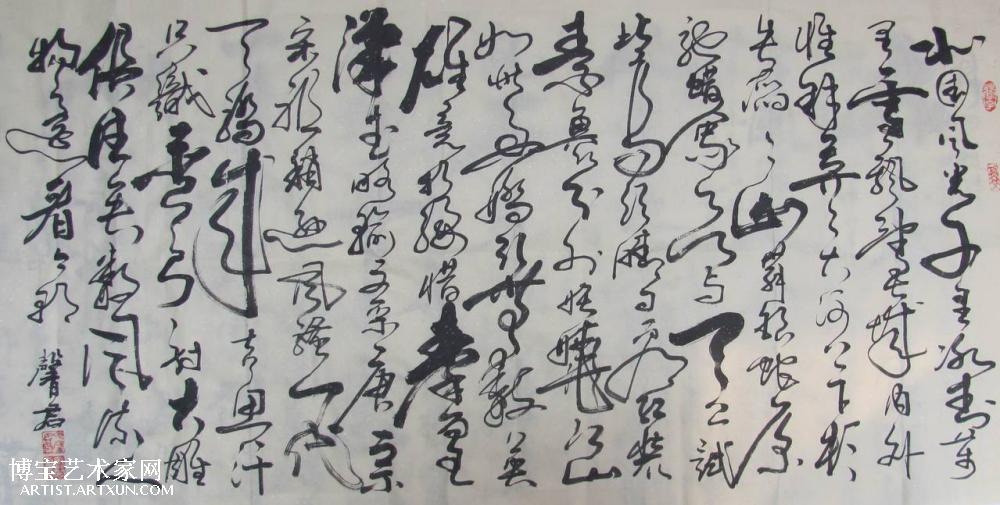 北国风光千里冰封万
里雪飘望长城内外
惟余莽莽大河上下顿
失滔滔山舞银蛇原
驰蜡象欲与天公試
比高须晴日看红装
素裹分外妖娆江山
如此多娇引無数英
雄竞折腰惜秦皇
汉武略输文采唐宗
宋祖稍逊风骚一代
天骄成吉思汗
只識弯弓射大雕
俱往矣数风流人
物还看今朝
馨君
博宝艺术家网
ARTIST.ARTXUN.COM